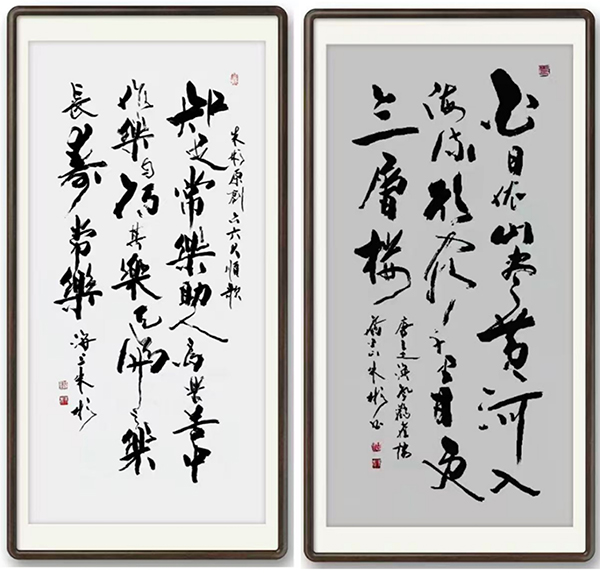 朱彬原創六六大順歌
知足常樂助人為樂苦中
作樂自得其樂天倫之樂
長壽常樂
海上朱彬
白日依山盡黄河入
海流欲窮千里目更
上一層樓
唐王之渙登鸛雀樓
朱彬书